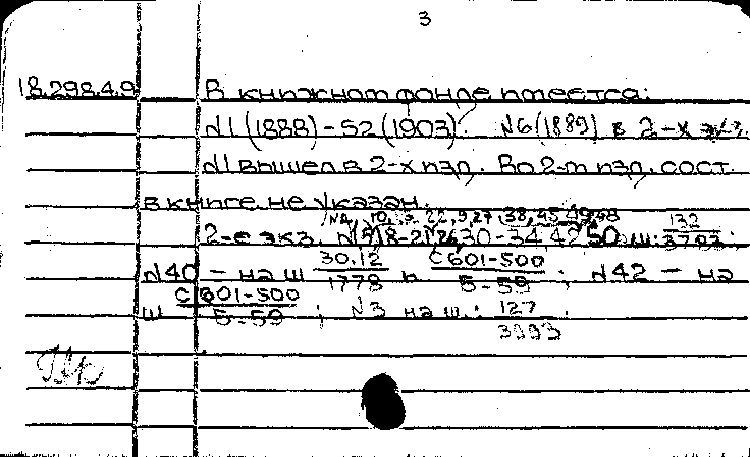 3
18.298.4.9 В книжном фонде имеется:
№1 (1888) - 52 (1903). №6 (1889) в 2-х экз.
№1 вышел в 2-х изд. Во 2-м изд. сост.
в книге не указан.
10, 22, 9, 27, 38, 45, 49,
2-е экз. 8-21 26 30-34 42 50 ш: 132/3793;
№40 - на ш 30.12/1778 и С601-500/5-59; №42 - на
ш С601-500/5-59; №3 на ш.: 127/3993.